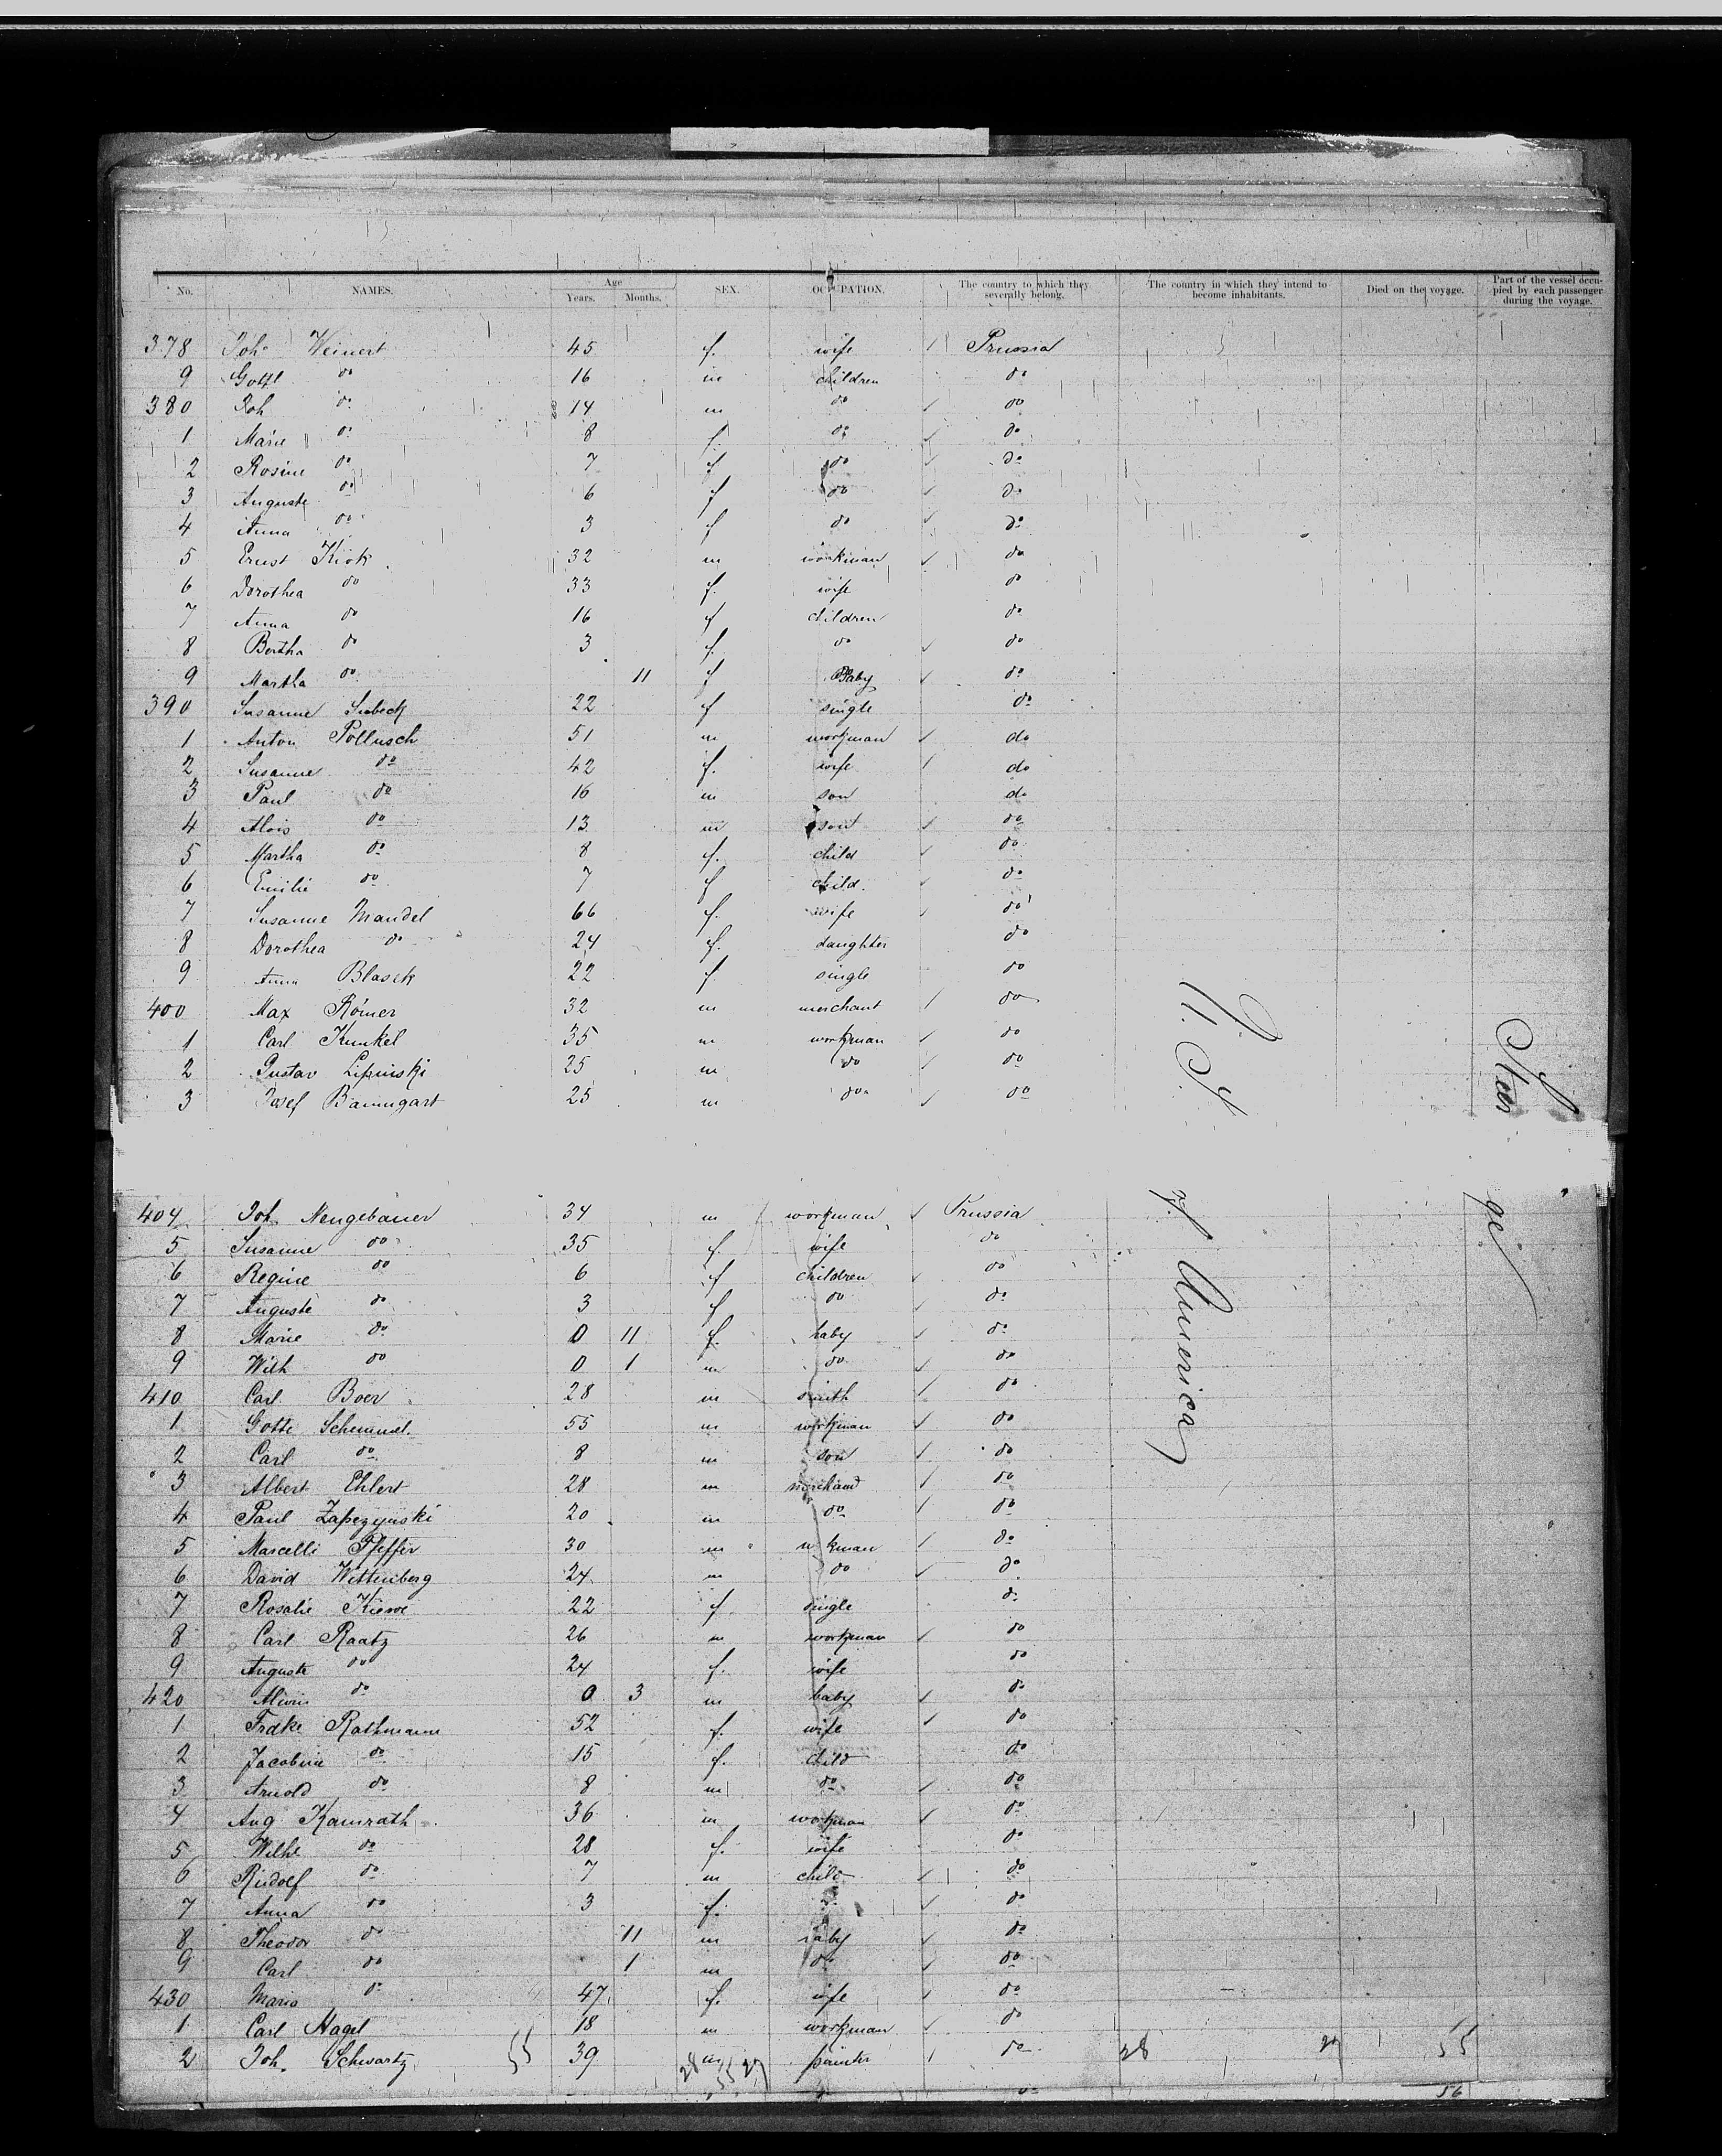 No. NAMES. Age Years. Months. SEX. OCCUPATION. The country to which they severally belong. The country in which they intend to become inhabitants. Died on the voyage. Part of the vessel occupied by each passenger during the voyage.
378 Joh. Weinert 45 f. wife Prussia
9 Gottl do 16 m children do
380 Joh do 14 m do do
1 Marie do 8 f. do do
2 Rosine do 7 f do do
3 Auguste do 6 f do do
4 Anna do 3 f do do
5 Ernst Kiok 32 m workman do
6 Dorothea do 33 f. wife do
7 Anna do 16 f children do
8 Bertha do 3 f. do do
9 Martha do 11 f Baby do
390 Susanne 22 f single do
1 Anton Pollusch 51 m workman do
2 Susanne do 42 f. wife do
3 Paul do 16 m son do
4 Alois do 13 m son do
5 Martha do 8 f. child do
6 Emilie do 7 f child. do
7 Susanne Mandel 66 f. wife do
8 Dorothea do 24 f. daughter do
9 Anna Blasek 22 f. single do
400 Max Römer 32 m merchant do
1 Carl Kunkel 35 m workman do
2 Gustav Lipinski 25 m do do
3 Josef Baumgart 25 m do do
U. S. Steer
404 Joh. Neugebauer 34 m workman Prussia
5 Susanne do 35 f. wife do
6 Regine do 6 f children do
7 Auguste do 3 f do do
8 Marie do 0 11 f. baby do
9 Wilh do 0 1 m do do
410 Carl Boer 28 m smith do
1 Gottl Schemmel. 55 m workman do
2 Carl do 8 m son do
3 Albert Ehlert 28 m merchand do
4 Paul Zapezynski 20 m do do
5 Marcelli Pfeffer 30 m w kman do
6 David Wittenberg 24 m do do
7 Rosalie Kiewe 22 f single do
8 Carl Raatz 26 m workman do
9 Auguste do 24 f. wife do
420 do 0 3 m baby do
1 Fridke Rathmann 52 f. wife do
2 Jacobine do 15 f. child do
3 Arnold do 8 m do do
4 Aug Kamrath 36 m workman do
5 Wilhe do 28 f. wife do
6 Rudolf do 7 m child do
7 Anna do 3 f. do do
8 Theodor do 11 m baby do
9 Carl do 1 m do do
430 Maria do 47 f. wife do
1 Carl Hagel 18 m workman do
2 Joh. Schwartz 55 39 m painter do 28 27 55
28 55 27
56
of America
ge